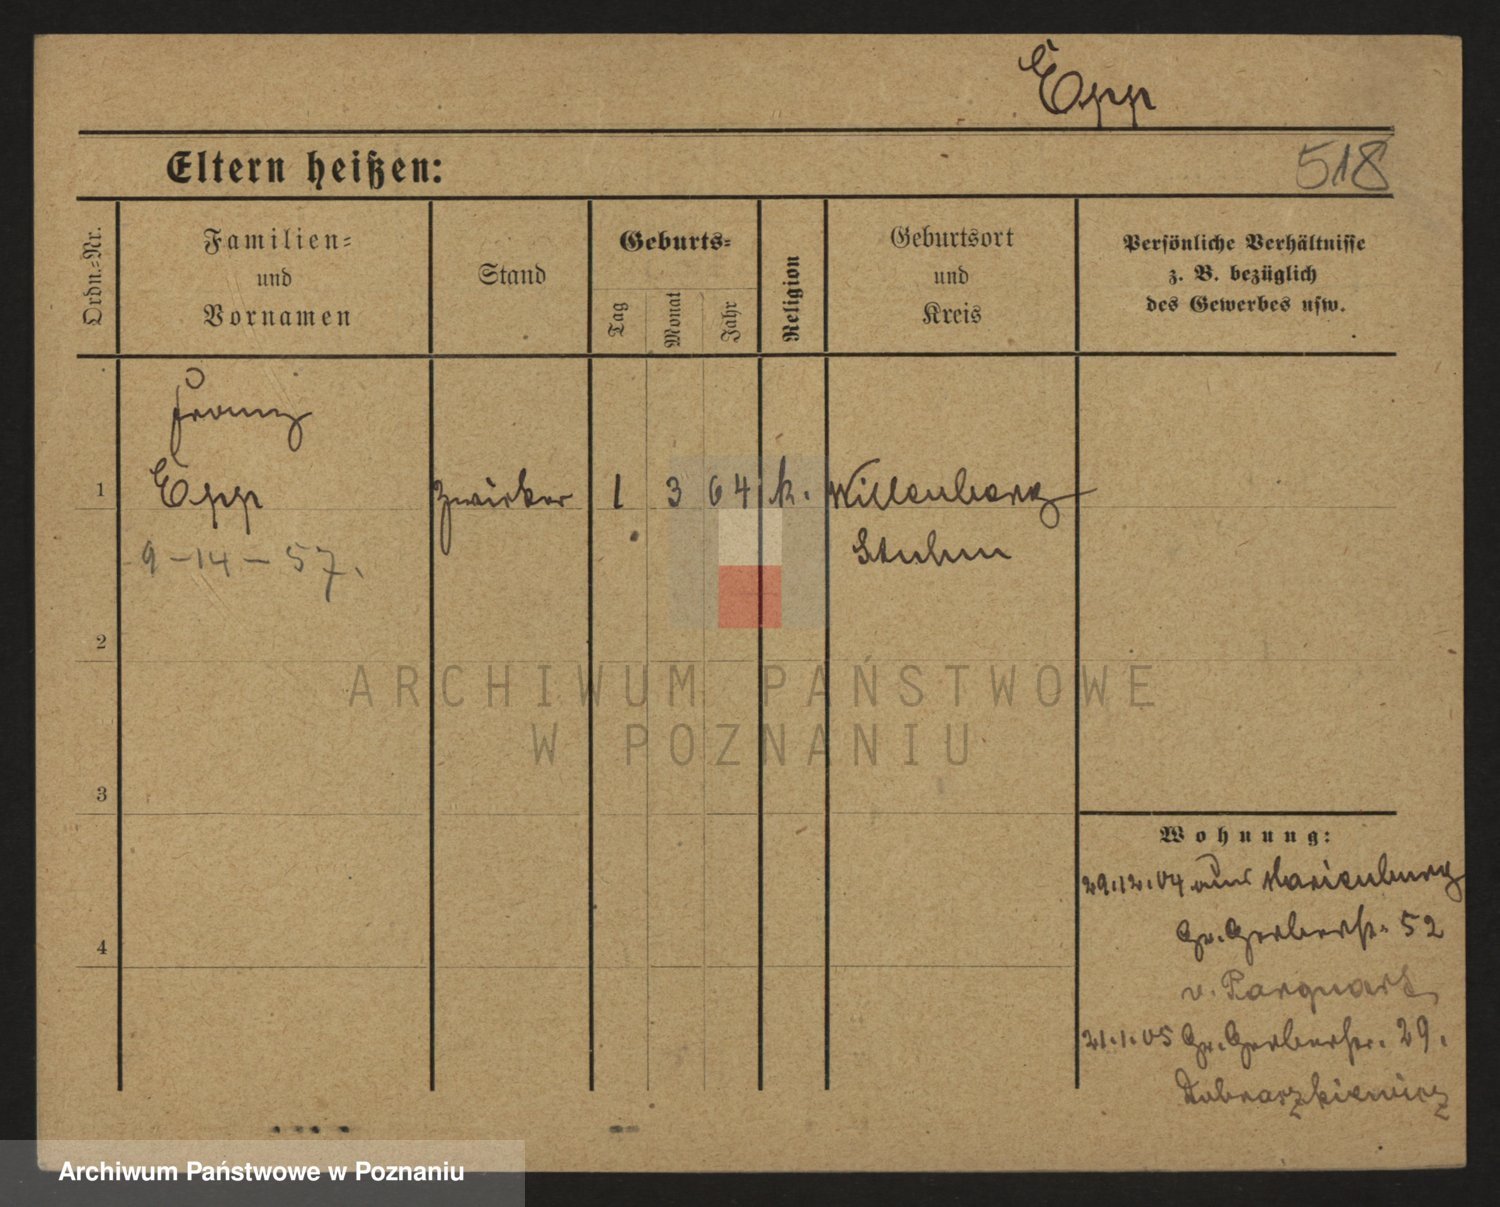 Epp
Eltern heißen:
518
Ordn.=Nr.
Familien=
und
Vornamen
Stand
Geburts=
Tag
Monat
Jahr
Religion
Geburtsort
und
Kreis
Persönliche Verhältnisse
z. B. bezüglich
des Gewerbes usw.
Franz
1 Epp Zwirker 1 3 64 k. Willenberg
Stuhm
9-14-57.
2
3
4
Wohnung:
29.12.04 aus Marienburg
Gr. Gerberstr. 52
v.
21.1.05 Gr. Gerberstr. 29.
ARCHIWUM PAŃSTWOWE
W POZNANIU
Archiwum Państwowe w Poznaniu